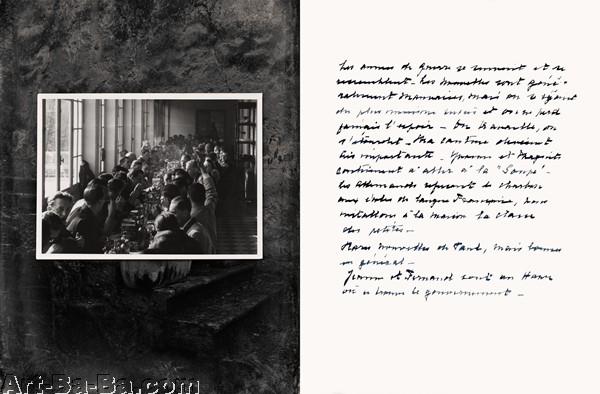 Les années de guerre se suivent et se
ressemblent - Les nouvelles sont géné-
ralement mauvaises, mais on se réjouit
du plus minime succès et on ne perd
jamais l'espoir - On travaille, on
s'étourdit - Ma cantine devient
très importante - Yvonne et Magritte
continuent à aller à la "Soupe" -
Les Allemands refusent le charbon
aux écoles de langue Française, nous
installons à la maison la classe
des petites -
Rares nouvelles de Paul, mais bonnes
en général -
Jeanne et Fernand sont au Havre
où se trouve le gouvernement -
Art-Ba-Ba.com